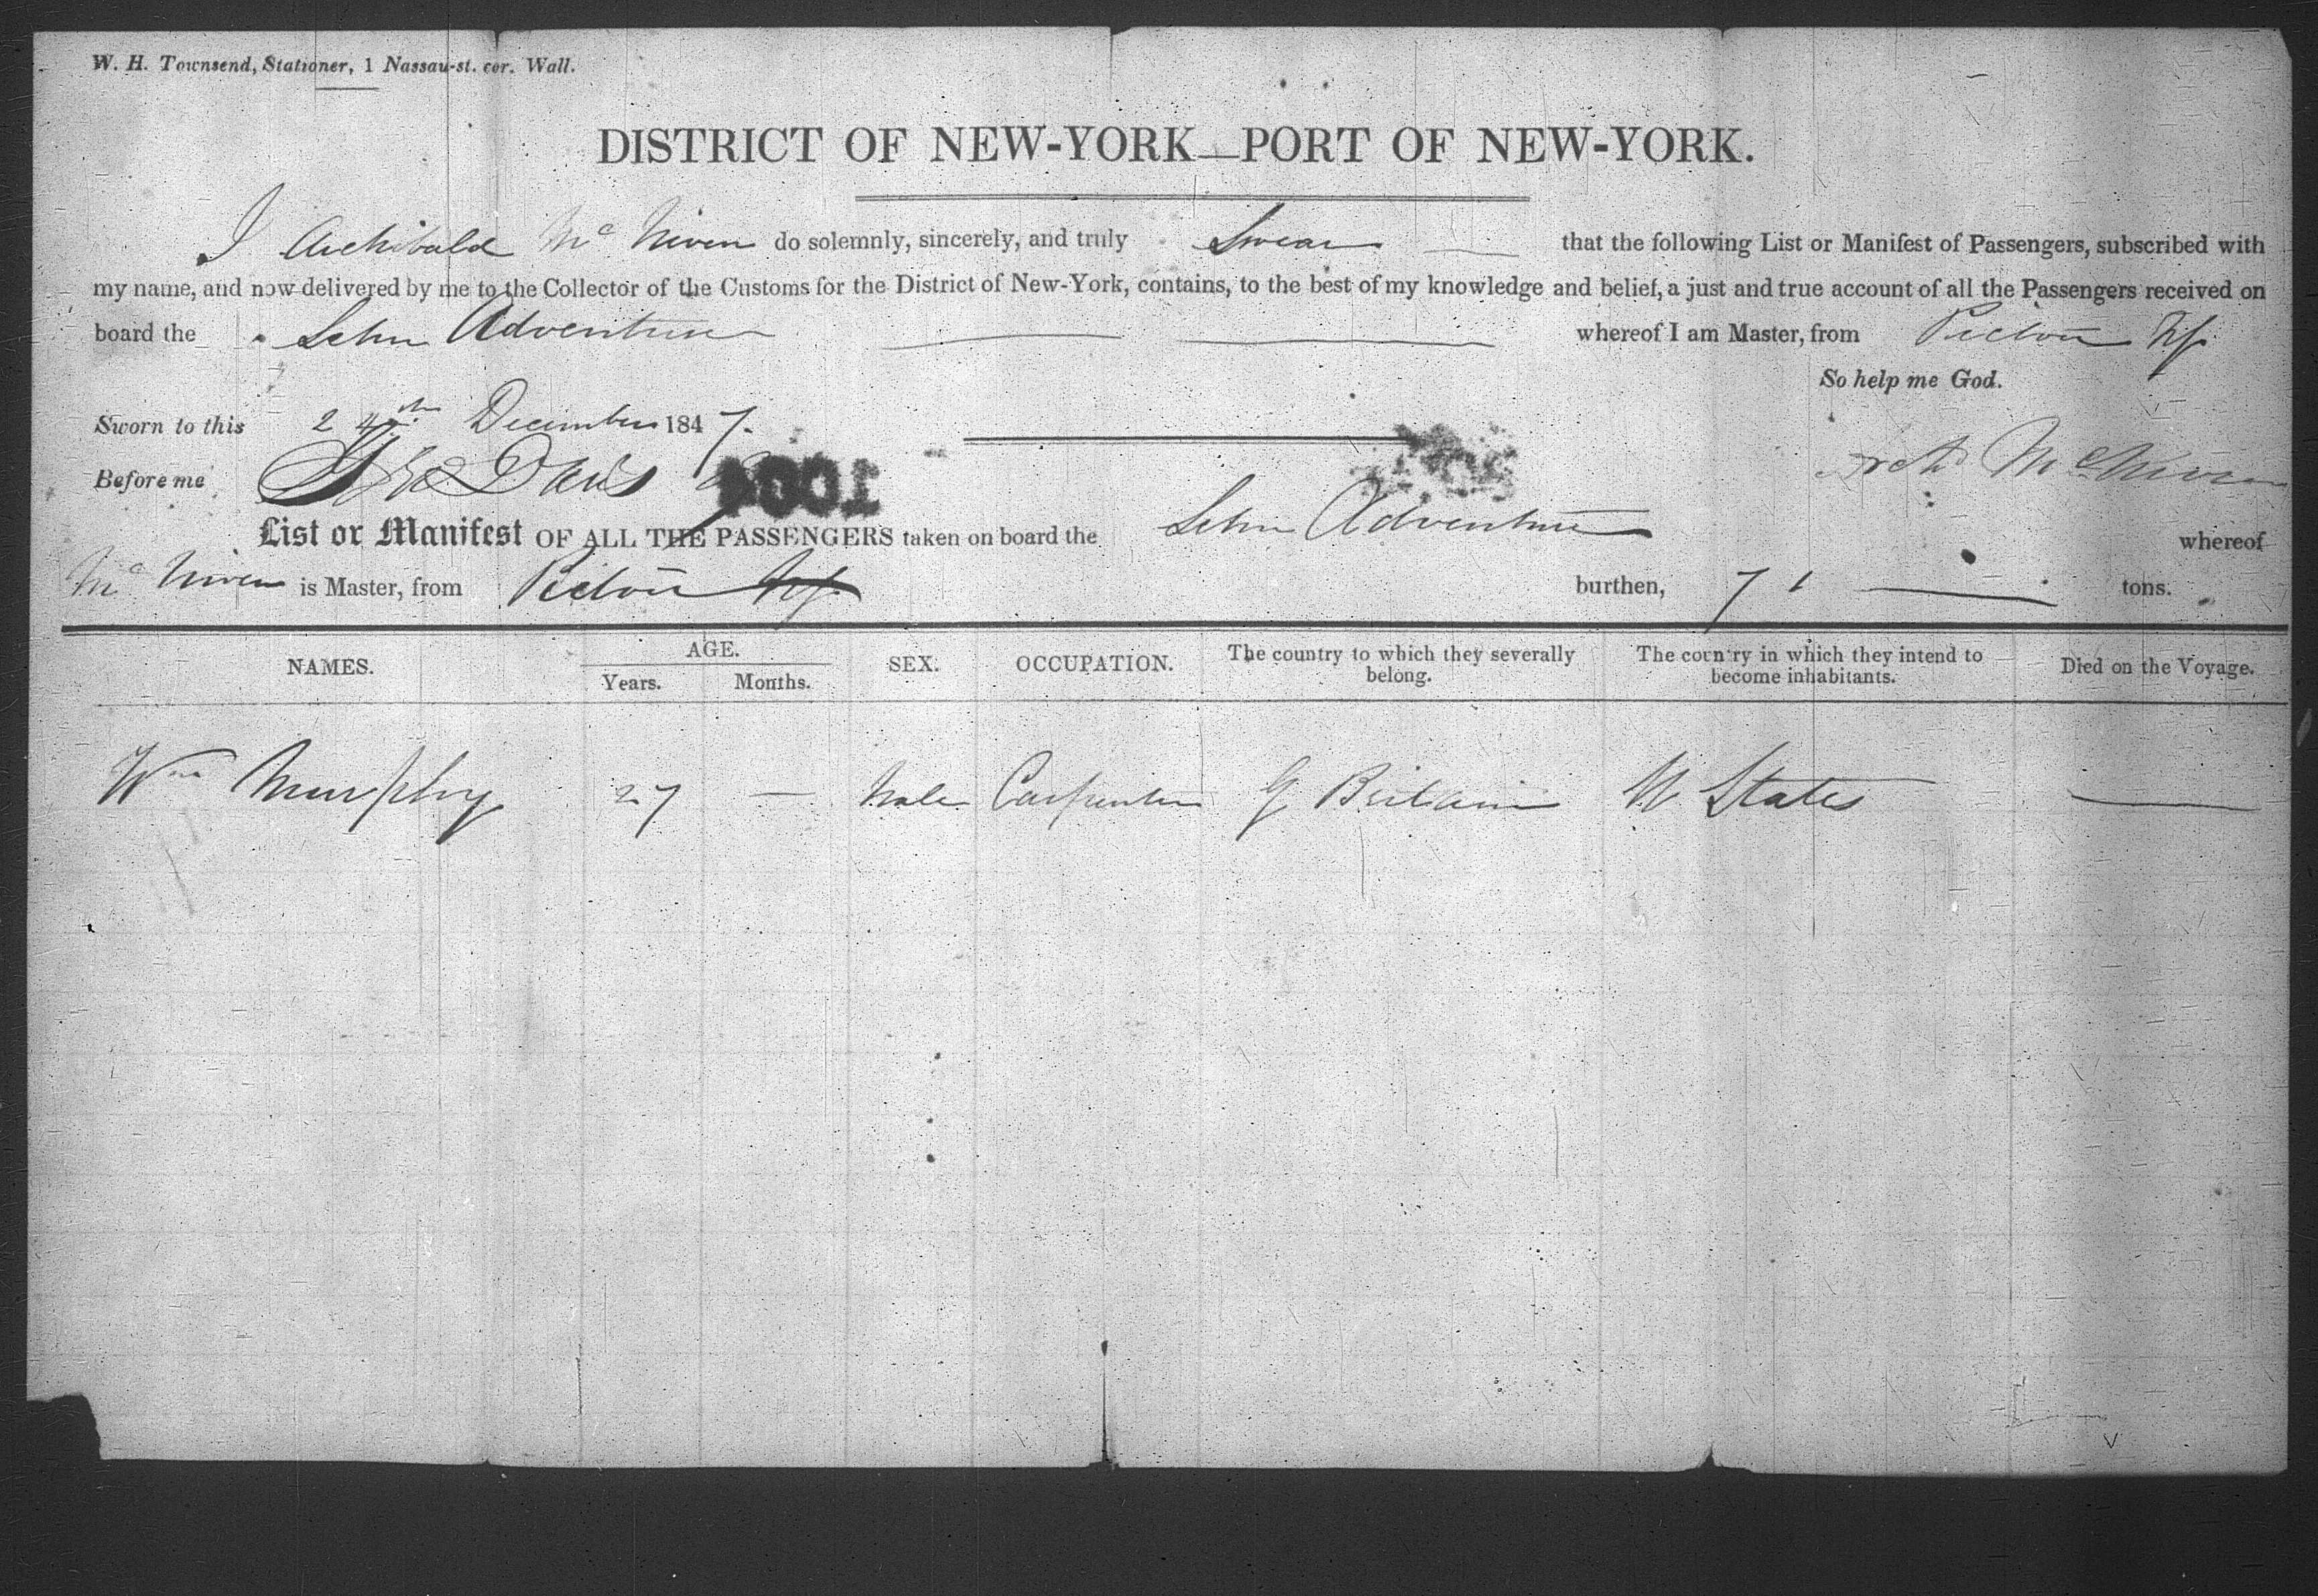 W. H. Townsend, Stationer, 1 Nassau-st. cor. Wall.
DISTRICT OF NEW-YORK—PORT OF NEW-YORK.
I Archibald Mc Niven do solemnly, sincerely, and truly Swear that the following List or Manifest of Passengers, subscribed with
my name, and now delivered by me to the Collector of the Customs for the District of New-York, contains, to the best of my knowledge and belief, a just and true account of all the Passengers received on
board the Schr Adventure whereof I am Master, from Pictou
So help me God.
Sworn to this 24th December 1847.
Before me Davis
1001
Archd McNiven
List or Manifest OF ALL THE PASSENGERS taken on board the Schr Adventure whereof
Mc Niven is Master, from Pictou burthen, 71 tons.
NAMES. AGE. SEX. OCCUPATION. The country to which they severally belong. The country in which they intend to become inhabitants. Died on the Voyage.
Years. Months.
Wm Murphy 27 — Male Carpenter G Britain U States —